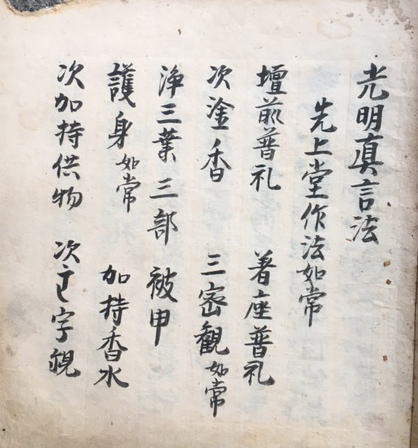 光明眞言法
先上堂作法如常
壇前普礼　著座普礼
次塗香　三密觀如常
淨三業三部被甲
護身如常　加持香水
次加持供物　次字観